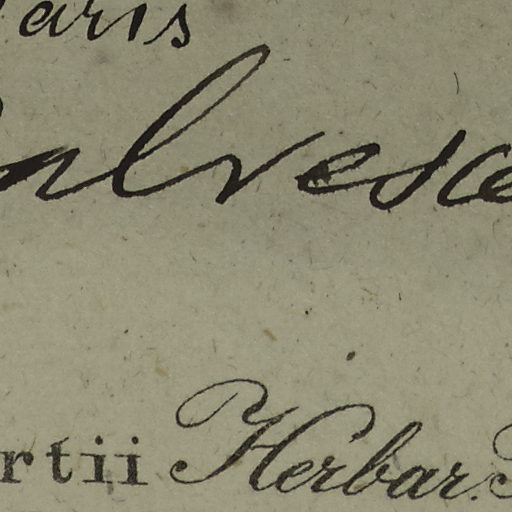 aris
ulvesce
rtii Herbar.